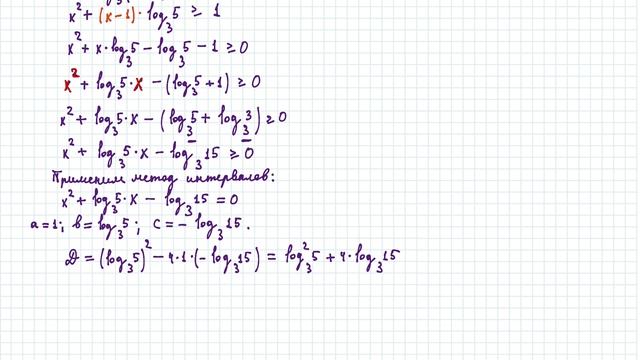 x² + (x-1)·log₃5 ≥ 1
x² + x·log₃5 - log₃5 - 1 ≥ 0
x² + log₃5·x - (log₃5 + 1) ≥ 0
x² + log₃5·x - (log₃5 + log₃3) ≥ 0
x² + log₃5·x - log₃15 ≥ 0
Применим метод интервалов:
x² + log₃5·x - log₃15 = 0
a = 1; b = log₃5; c = - log₃15.
D = (log₃5)² - 4·1·(- log₃15) = log₃²5 + 4·log₃15